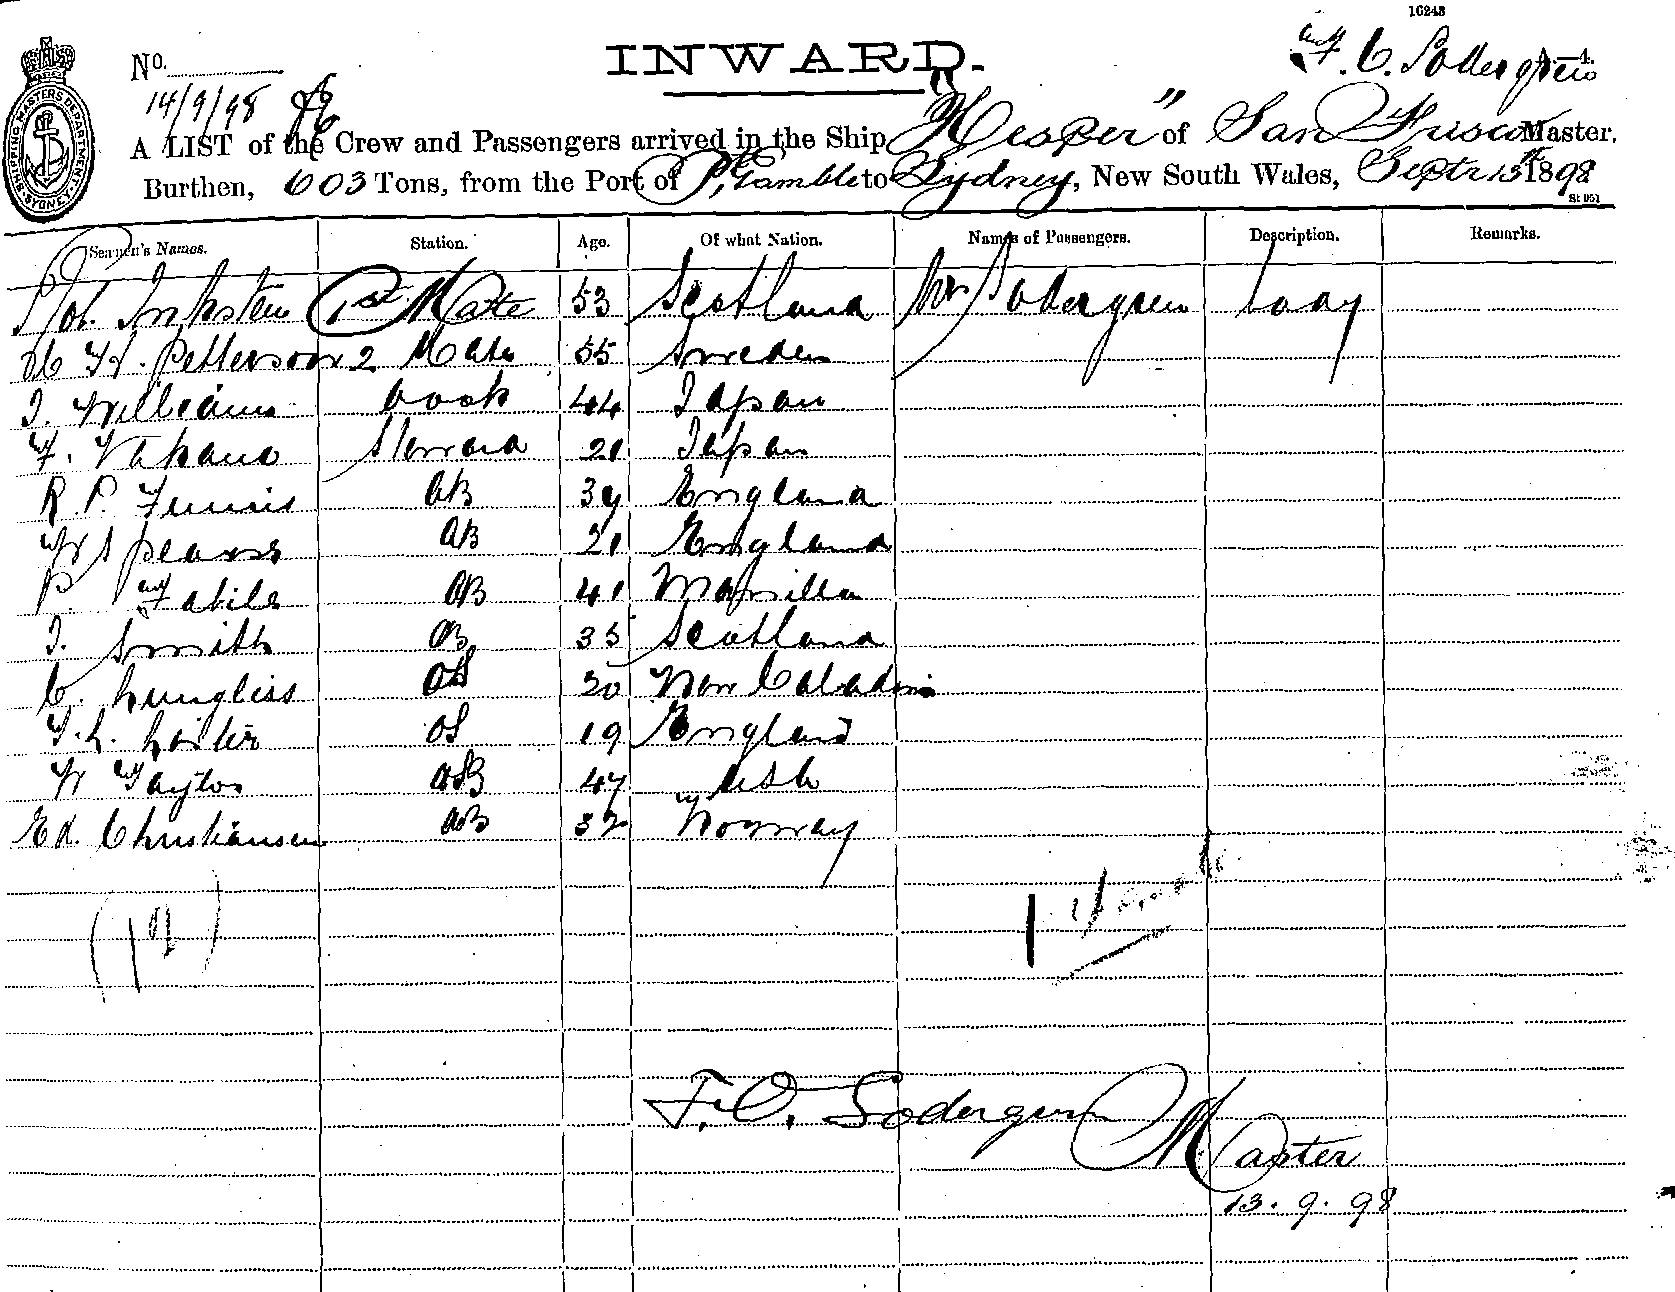 16243
No.
INWARD.
F. C. Sodergren
14/9/98
A LIST of the Crew and Passengers arrived in the Ship "Hesper" of San Frisco Master,
Burthen, 603 Tons, from the Port of Pt Gamble to Sydney, New South Wales, Septr 13th 1898
SHIPPING MASTERS DEPARTMENT SYDNEY
Seamen's Names. Station. Age. Of what Nation. Names of Passengers. Description. Remarks.
Inksten 1st Mate 53 Scotland Sodergren Lady
H. Petterson 2 Mate 55 Sweden
J. Williams Cook 44 Japan
Steward 21 Japan
R. P. AB England
W Spears AB 21 England
P AB 41 Manilla
J. Smith AB 35 Scotland
C. OS 20 New Caladonia
OS 19 England
W Taylor AB 47 USA
Ed. Christiansen AB 32 Norway
(12)
1 Female
F. O. Sodergren Master
13.9.98